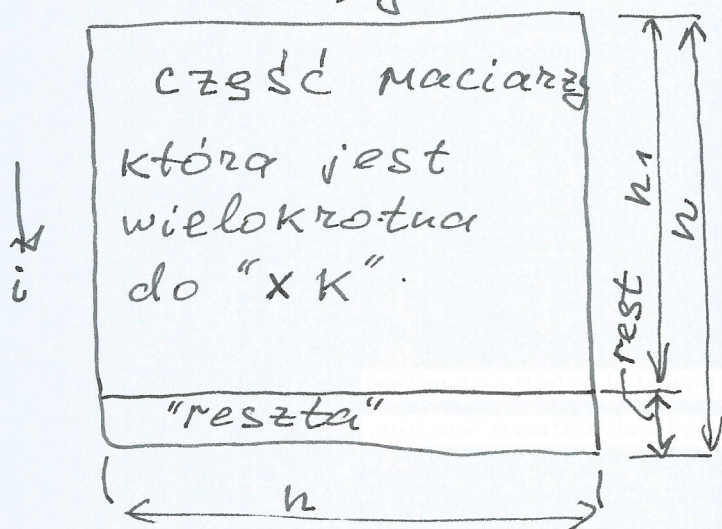 część maciarzy
która jest
wielokrotna
do "x K".
i
"reszta"
n1
n
rest
n